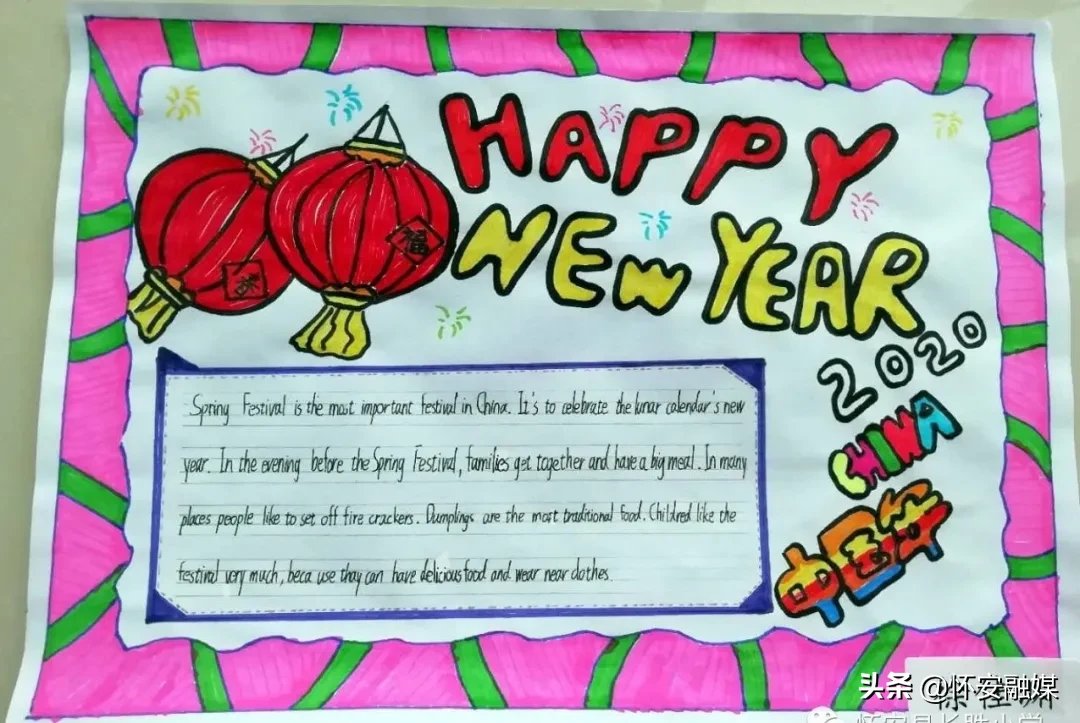 HAPPY
NEW YEAR
2020
CHINA
中国年
福
Spring Festival is the most important festival in China. It's to celebrate the lunar calendar's new
year. In the evening before the Spring Festival, families get together and have a big meal. In many
places people like to set off fire crackers. Dumplings are the most traditional food. Childred like the
festival very much, beca use thay can have delicious food and wear near clothes.
头条 @怀安融媒